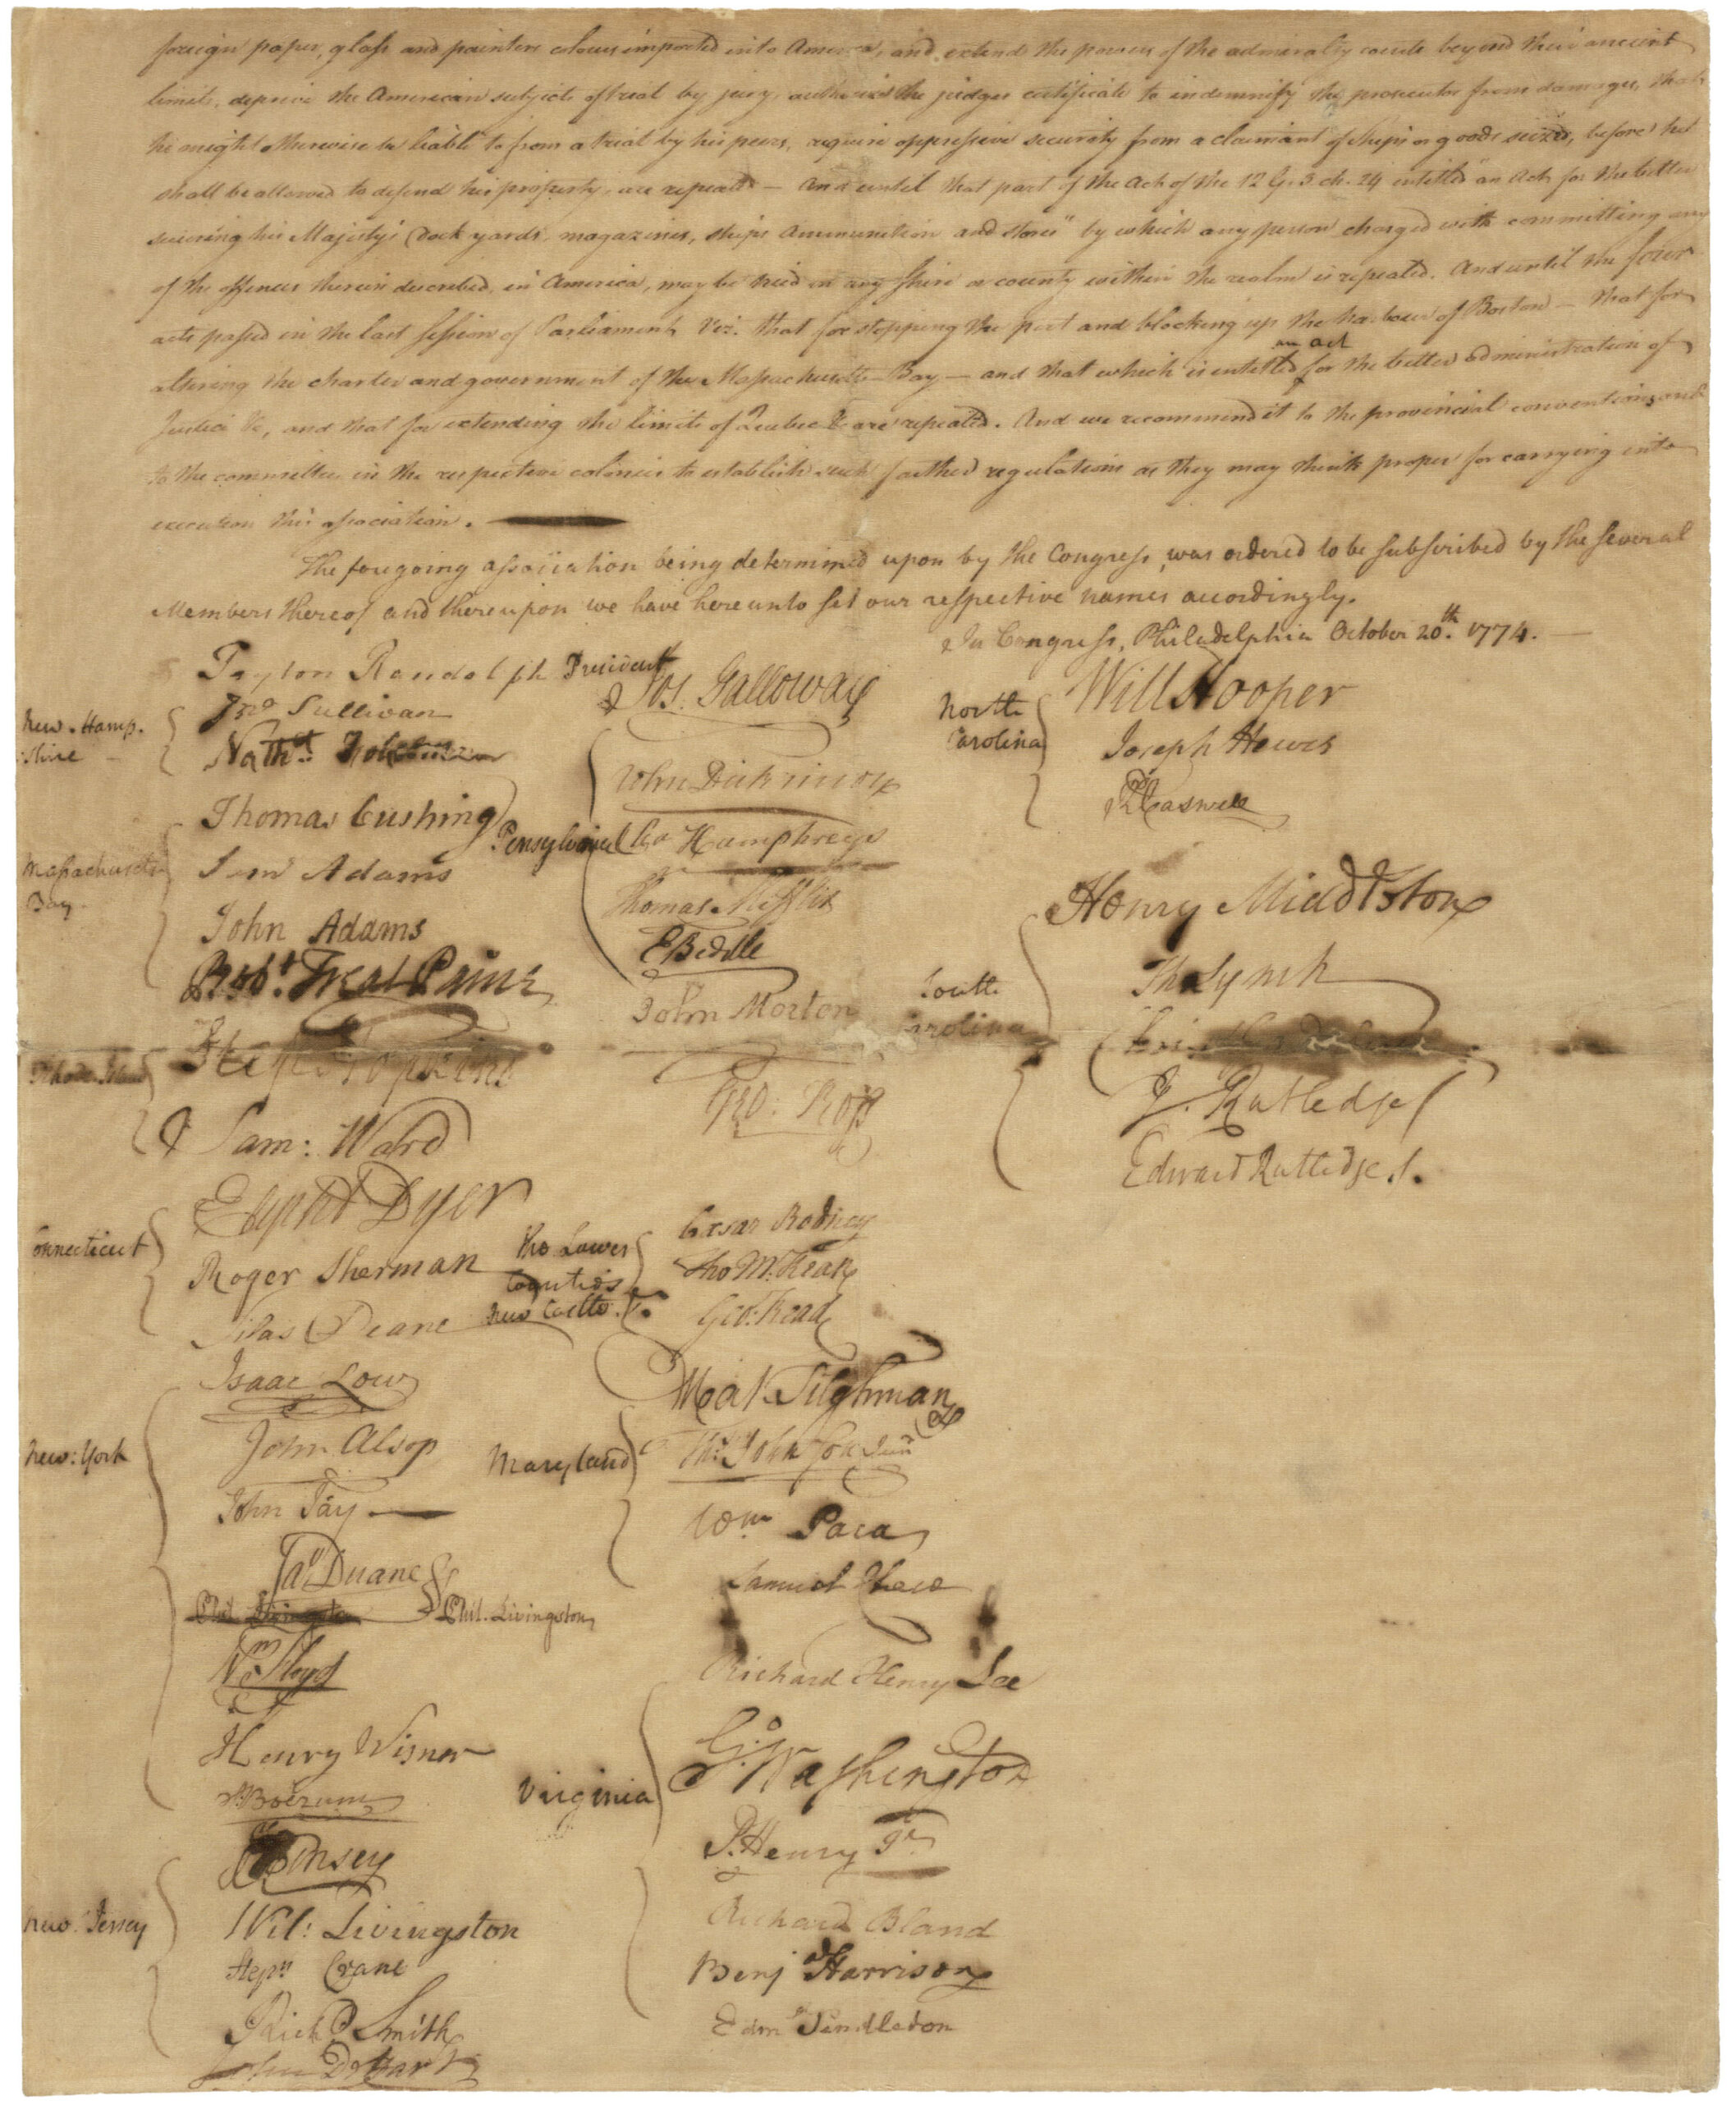 foreign paper, glass and painters colours imported into America, and extend the powers of the admiralty courts beyond their ancient
limits, deprive the American subjects of trial by jury, authorize the judges certificate to indemnify the prosecutor from damages, that
he might otherwise be liable to from a trial by his peers, require oppressive security from a claimant of ships or goods seized, before he
shall be allowed to defend his property, are repealed — And until that part of the Act of the 12 G. 3. ch. 24 entitled "an Act for the better
securing his Majestys Dock yards, magazines, ships Ammunition and stores" by which any person charged with committing any
of the offences therein described, in America, may be tried in any Shire or county within the realm is repealed. And until the four
acts passed in the last session of Parliament, Viz. that for stopping the port and blocking up the harbour of Boston — that for
altering the charter and government of the Massachusetts-Bay — and that which is entitled an act for the better administration of
Justice &c, and that for extending the limits of Quebec &c are repealed. And we recommend it to the provincial conventions and
to the committees in the respective colonies to establish such farther regulations as they may think proper for carrying into
execution this association.
The foregoing association being determined upon by the Congress, was ordered to be subscribed by the several
Members thereof and thereupon we have hereunto set our respective names accordingly.
In Congress, Philadelphia October 20th. 1774.
Peyton Randolph President
New-Hamp-
shire
Jno Sullivan
Nathl. Folsom
Massachusetts
Bay
Thomas Cushing
Saml Adams
John Adams
Robt. Treat Paine
Rhode Island
Step Hopkins
Sam: Ward
Connecticut
Elipht Dyer
Roger Sherman
Silas Deane
New-York
Isaac Low
John Alsop
John Jay
Jas Duane
Phil. Livingston
Phil. Livingston
Wm Floyd
Henry Wisner
S: Boerum
New Jersey
Kinsey
Wil: Livingston
Stepn Crane
Richd Smith
John De Hart
Jos. Galloway
Pensylvania
John Dickinson
Cha Humphreys
Thomas Mifflin
E Biddle
John Morton
Geo: Ross
The Lower
Counties
New Castle
Cæsar Rodney
Tho M: Kean
Geo: Read
Maryland
Mat Tilghman
Ths Johnson Junr
Wm Paca
Samuel Chase
Virginia
Richard Henry Lee
Go Washington
P. Henry Jr
Richard Bland
Benj Harrison
Edmd Pendleton
North
Carolina
Will Hooper
Joseph Hewes
Rd Caswell
South
Carolina
Henry Middleton
Tho Lynch
J. Rutledge
Edward Rutledge